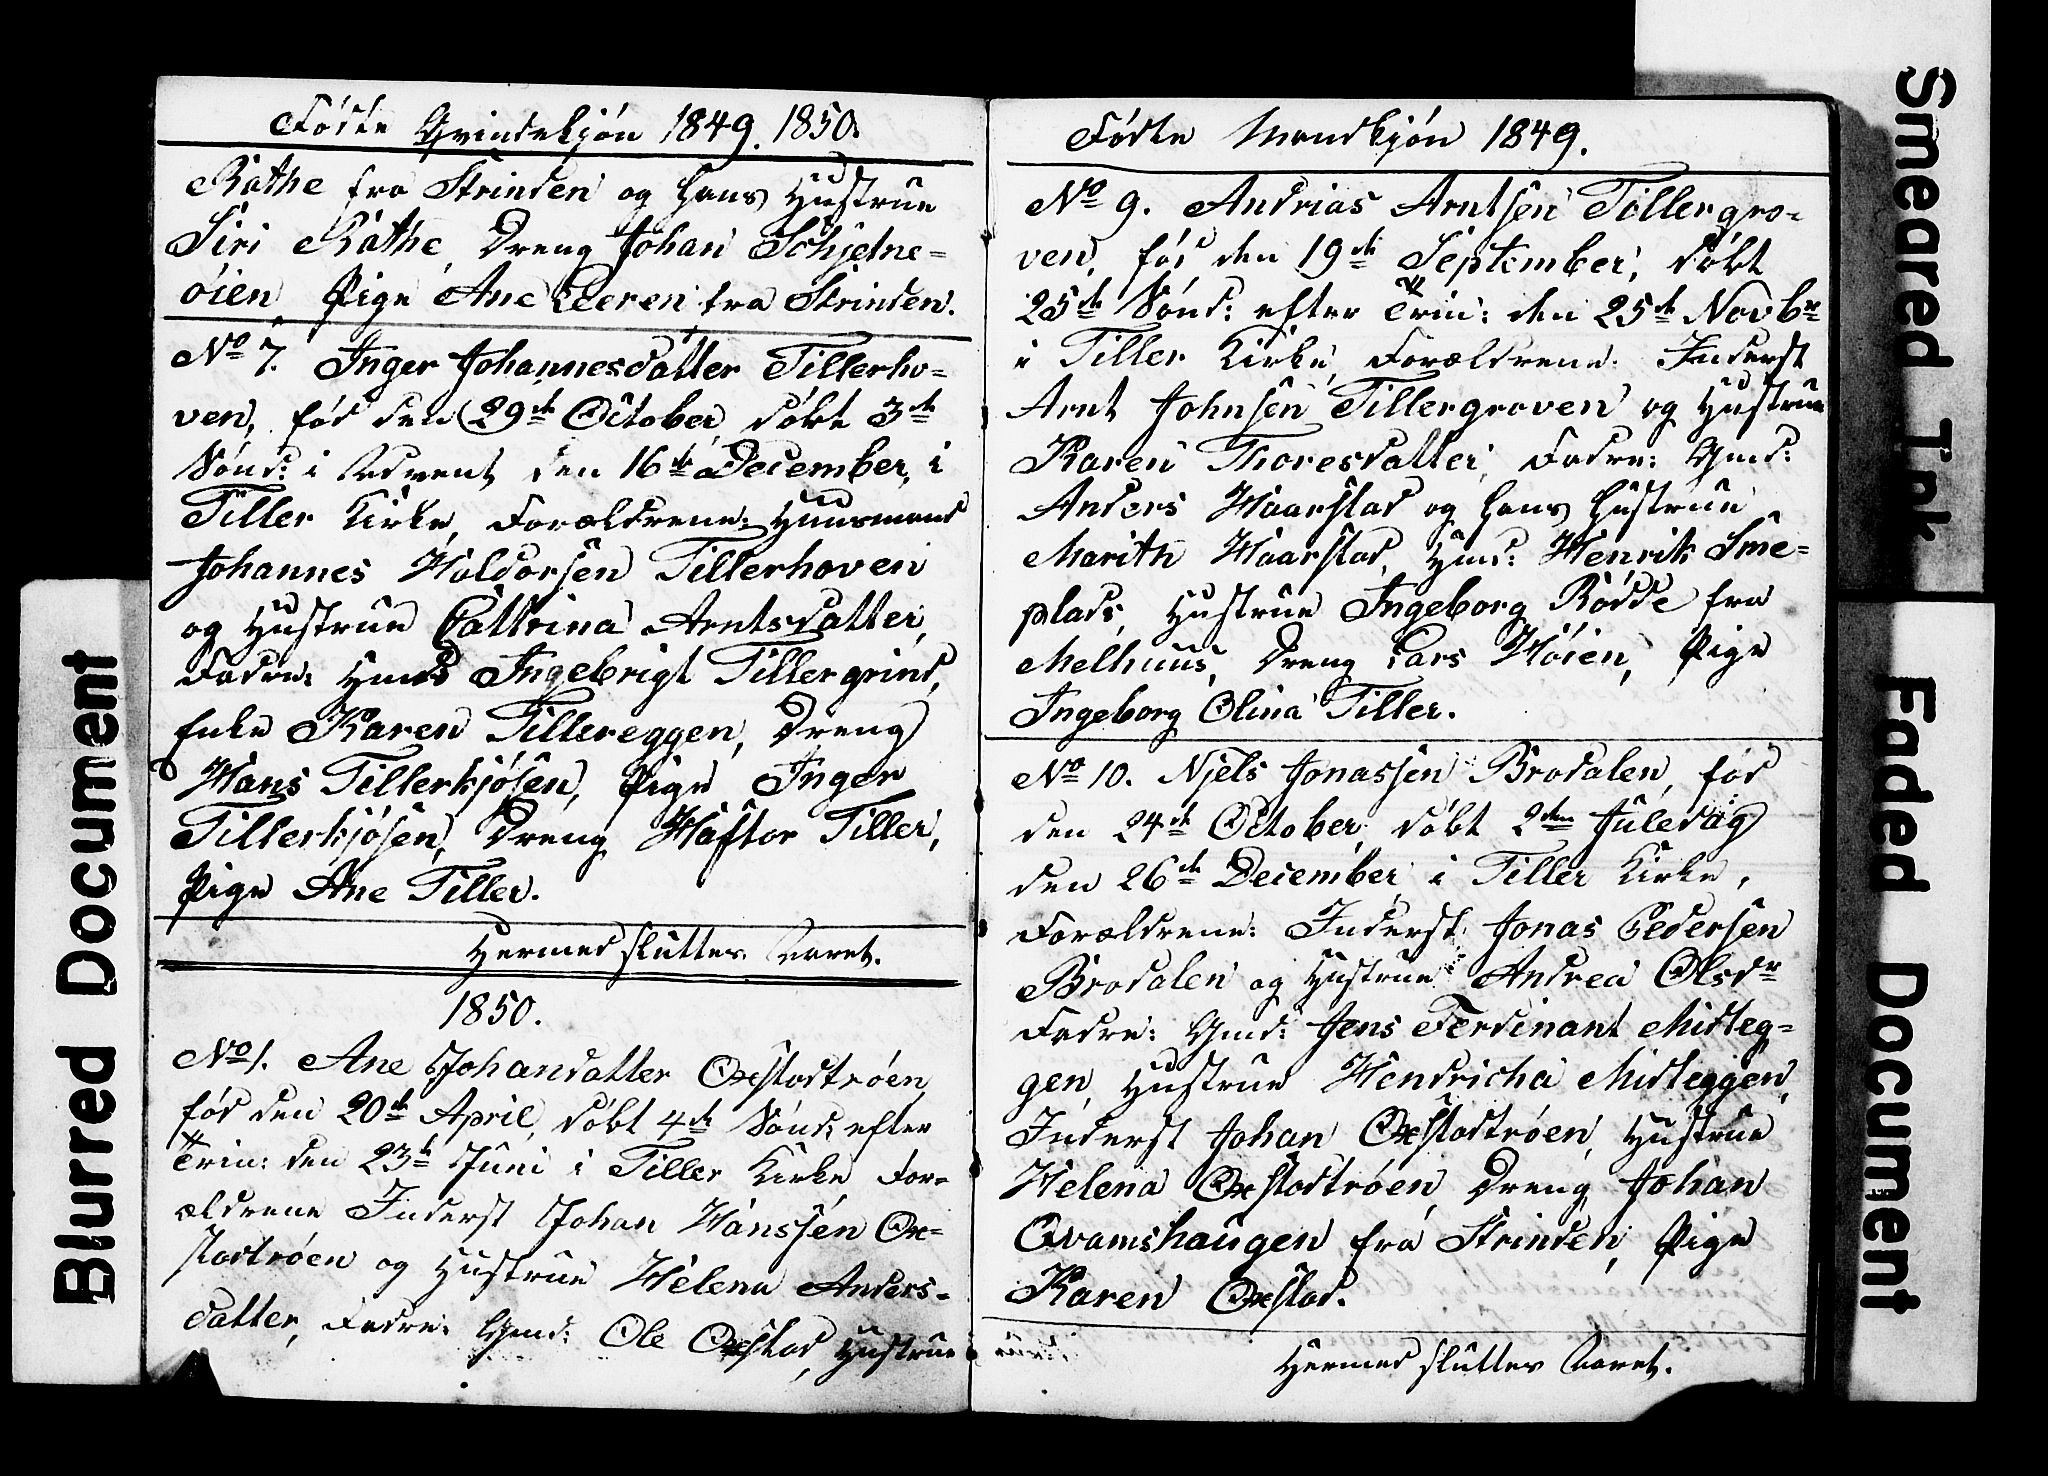 Fødte Qvindekjøn 1849. 1850.
Rathe fra Strinden og hans Hustrue
Siri Rathe, Dreng Johan Schjetne=
øien, Pige Ane Leeren fra Strinden.
No 7. Inger Johannesdatter Tillerho=
ven, fød den 29de October, døbt 3de
Sønd: i Advent den 16de December, i
Tiller Kirke, Forældrene: Huusmand
Johannes Haldorsen Tillerhoven
og Hustrue Cattrina Arntsdatter,
Fadre: Hmd Ingebrigt Tillergrind,
Enke Karen Tillereggen, Dreng
Hans Tillerkjøsen, Pige Inger
Tillerkjøsen, Dreng Haftor Tiller,
Pige Ane Tiller.
Hermed sluttes Aaret.
1850.
No 1. Ane Johansdatter Oxstadtrøen,
fød den 20de April, døbt 4de Sønd: efter
Trin: den 23de Juni i Tiller Kirke For=
ældrene Inderst Johan Hanssen Ox=
stadtrøen og Hustrue Helena Anders=
datter, Fadre: Gmd: Ole Oxstad, Hustrue
Fødte Mandkjøn 1849.
No 9. Andrias Arntsen Tillergro=
ven, fød den 19de September, døbt
25de Sønd: efter Trin: den 25de Novbr
i Tiller Kirke, Forældrene: Inderst
Arnt Johnsen Tillergroven og Hustrue
Karen Thoresdatter, Fadre: Gmd:
Anders Haarstad og hans Hustrue
Marith Haarstad, Hmd: Henrik Sme=
plads, Hustrue Ingeborg Rødde fra
Melhuus, Dreng Lars Høien, Pige
Ingeborg Olina Tiller.
No 10. Njels Jonassen Brodalen, fød
den 24de October, døbt 2den Juledag
den 26de December i Tiller Kirke,
Forældrene: Inderst Jonas Pedersen
Brodalen og Hustrue Andrea Olsdr
Fadre: Gmd: Jens Ferdinant Midteg=
gen, Hustrue Hendricha Midteggen,
Inderst Johan Oxstadtrøen, Hustrue
Helena Oxstadtrøen, Dreng Johan
Qvamshaugen fra Strinden, Pige
Karen Oxstad.
Hermed sluttes Aaret.
Blurred Document
Smeared Ink
Faded Document